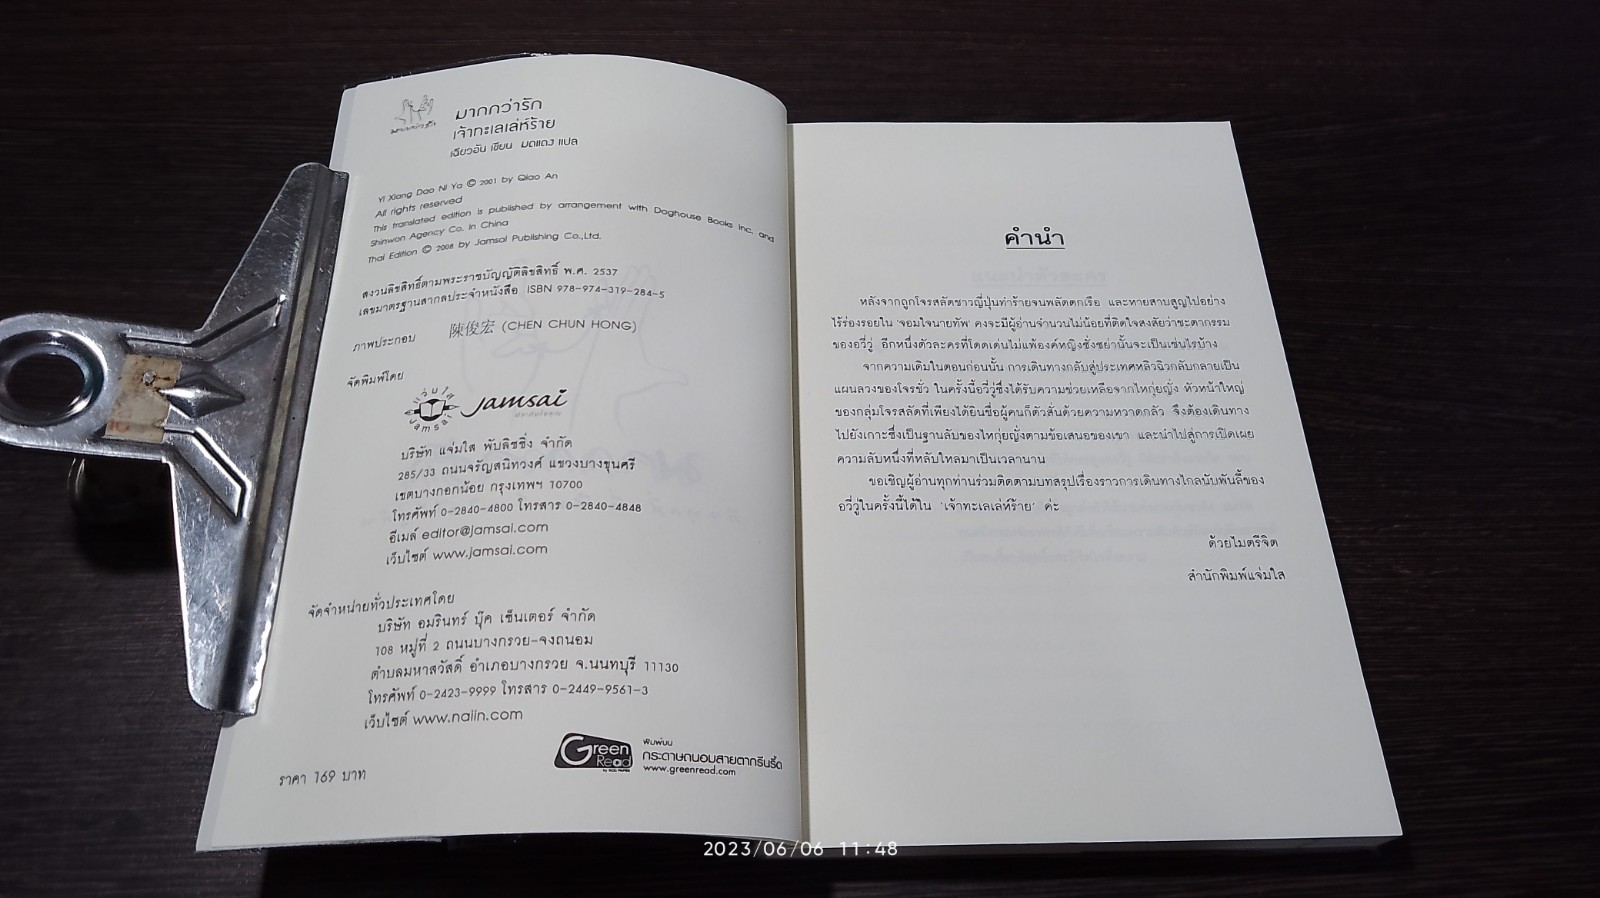 มากกว่ารัก
มากกว่ารัก
เจ้าทะเลเล่ห์ร้าย
เฉียวอัน เขียน มดแดง แปล
Yi Xiang Dao Ni Ya © 2001 by Qiao An
All rights reserved
This translated edition is published by arrangement with Doghouse Books Inc, and
Shinwon Agency Co. in China
Thai Edition © 2008 by Jamsai Publishing Co.,Ltd.
สงวนลิขสิทธิ์ตามพระราชบัญญัติลิขสิทธิ์ พ.ศ. 2537
เลขมาตรฐานสากลประจำหนังสือ ISBN 978-974-319-284-5
ภาพประกอบ 陳俊宏 (CHEN CHUN HONG)
จัดพิมพ์โดย
แจ่มใส
Jamsai
jamsai
บริษัท แจ่มใส พับลิชชิ่ง จำกัด
285/33 ถนนจรัญสนิทวงศ์ แขวงบางขุนศรี
เขตบางกอกน้อย กรุงเทพฯ 10700
โทรศัพท์ 0-2840-4800 โทรสาร 0-2840-4848
อีเมล์ editor@jamsai.com
เว็บไซต์ www.jamsai.com
จัดจำหน่ายทั่วประเทศโดย
บริษัท อมรินทร์ บุ๊ค เซ็นเตอร์ จำกัด
108 หมู่ที่ 2 ถนนบางกรวย-จงถนอม
ตำบลมหาสวัสดิ์ อำเภอบางกรวย จ.นนทบุรี 11130
โทรศัพท์ 0-2423-9999 โทรสาร 0-2449-9561-3
เว็บไซต์ www.naiin.com
Green
Read
พิมพ์บน
กระดาษถนอมสายตากรีนรี้ด
www.greenread.com
ราคา 169 บาท
คำนำ
หลังจากถูกโจรสลัดชาวญี่ปุ่นทำร้ายจนพลัดตกเรือ และหายสาบสูญไปอย่าง
ไร้ร่องรอยใน 'จอมใจนายทัพ' คงจะมีผู้อ่านจำนวนไม่น้อยที่ติดใจสงสัยว่าชะตากรรม
ของอวี่วู่ อีกหนึ่งตัวละครที่โดดเด่นไม่แพ้องค์หญิงซั่งซย่านั้นจะเป็นเช่นไรบ้าง
จากความเดิมในตอนก่อนนั้น การเดินทางกลับสู่ประเทศหลิวฉิวกลับกลายเป็น
แผนลวงของโจรชั่ว ในครั้งนี้อวี่วู่ซึ่งได้รับความช่วยเหลือจากไหกุ่ยญั่ง หัวหน้าใหญ่
ของกลุ่มโจรสลัดที่เพียงได้ยินชื่อผู้คนก็ตัวสั่นด้วยความหวาดกลัว จึงต้องเดินทาง
ไปยังเกาะซึ่งเป็นฐานลับของไหกุ่ยญั่งตามข้อเสนอของเขา และนำไปสู่การเปิดเผย
ความลับหนึ่งที่หลับใหลมาเป็นเวลานาน
ขอเชิญผู้อ่านทุกท่านร่วมติดตามบทสรุปเรื่องราวการเดินทางไกลนับพันลี้ของ
อวี่วู่ในครั้งนี้ได้ใน 'เจ้าทะเลเล่ห์ร้าย' ค่ะ
ด้วยไมตรีจิต
สำนักพิมพ์แจ่มใส
2023/06/06 11:48